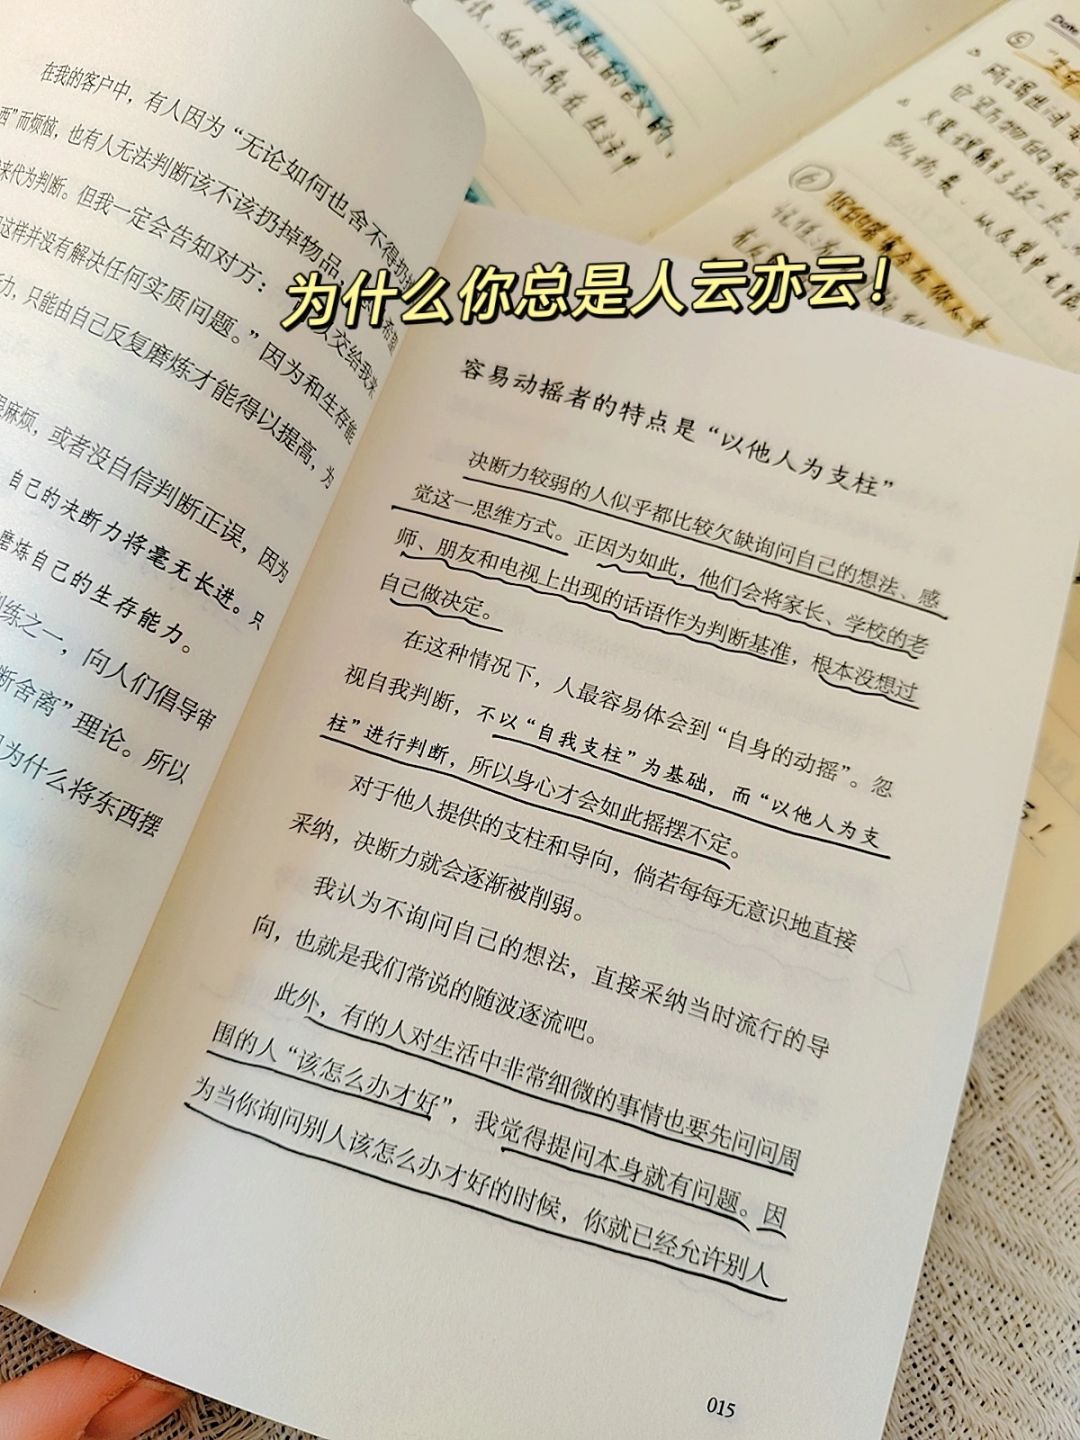 在我的客户中，有人因为“无论如何也舍不得扔
西”而烦恼，也有人无法判断该不该扔掉物品，
来代为判断。但我一定会告知对方：
以交给我来
这样并没有解决任何实质问题。”因为和生存能
力，只能由自己反复磨炼才能得以提高，为
麻烦，或者没自信判断正误，因为
自己的决断力将毫无长进。只
磨炼自己的生存能力。
训练之一，向人们倡导审
断舍离”理论。所以
为什么将东西摆
为什么你总是人云亦云！
容易动摇者的特点是“以他人为支柱”
决断力较弱的人似乎都比较欠缺询问自己的想法、感
觉这一思维方式。正因为如此，他们会将家长、学校的老
师、朋友和电视上出现的话语作为判断基准，根本没想过
自己做决定。
在这种情况下，人最容易体会到“自身的动摇”。忽
视自我判断，不以“自我支柱”为基础，而“以他人为支
柱”进行判断，所以身心才会如此摇摆不定。
对于他人提供的支柱和导向，倘若每每无意识地直接
采纳，决断力就会逐渐被削弱。
我认为不询问自己的想法，直接采纳当时流行的导
向，也就是我们常说的随波逐流吧。
此外，有的人对生活中非常细微的事情也要先问问周
围的人“该怎么办才好”，我觉得提问本身就有问题。因
为当你询问别人该怎么办才好的时候，你就已经允许别人
015
的事情
如果不能在生活中
Date
⑤
⑥